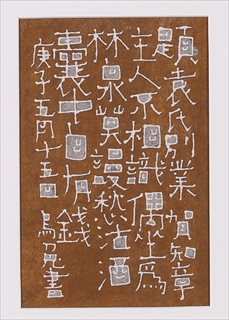 題袁氏別業賀知章
主人不相識偶坐為
林泉莫謾愁沽酒
囊中自有錢
庚子五月十五日烏兔書